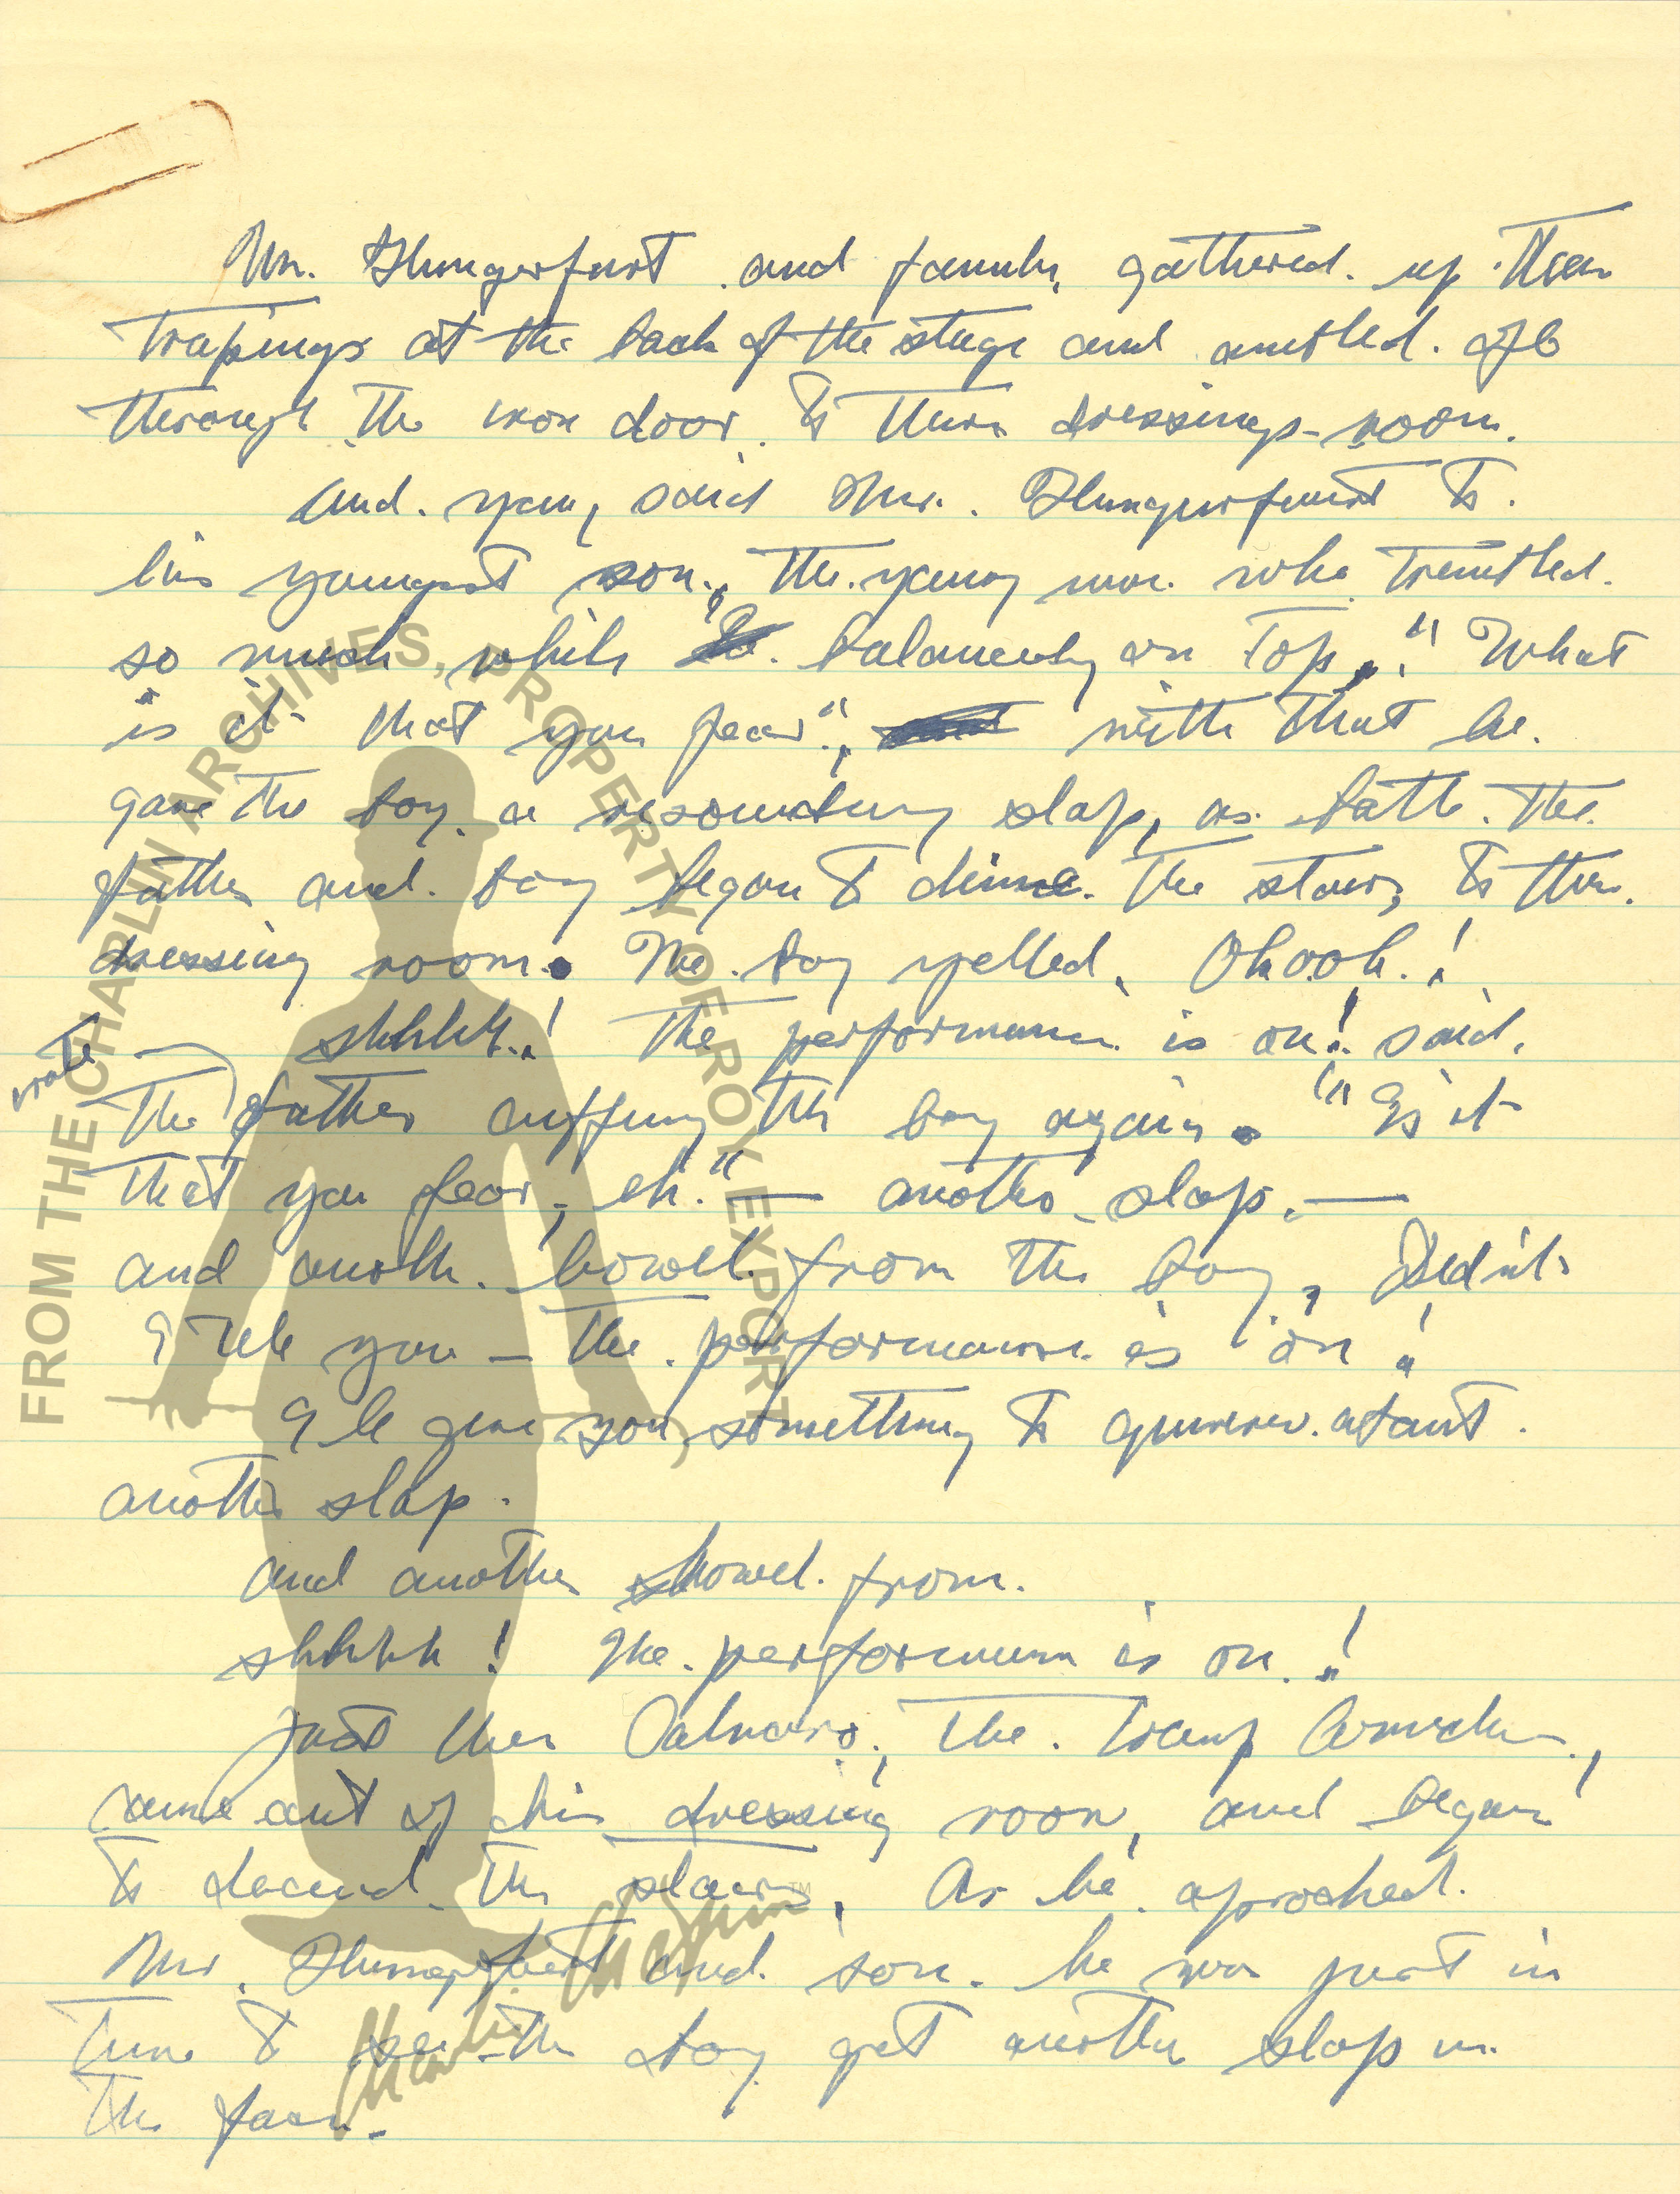 Mr. Hungerfurst and family gathered up their
trapings at the back of the stage and ambled off
through the iron door to their dressings-room.
And you, said Mr. Hungerfurst to
his youngest son, the young man who trembled
so much while balancing on top. "What
is it that you fear", with that he
gave the boy a resounding slap, as both the
father and boy began to climb the stairs to their
dressing room. The boy yelled, Ohooh!
shhhh! The performance is on! said
The father cuffing the boy again. "Is it
that you fear, eh." — another slap. —
and another howel from the boy, Didn't
I tell you — the performance is on!
I'le give you something to about.
another slap.
and another howel from.
shhhh! The performance is on!
Just then Calvero, the Tramp Comedian,
came out of his dressing room, and began
to decend the stairs, As he aproched
Mr. Hungerfurst and son. he was just in
time to see the boy get another slap in
the face.
FROM THE CHAPLIN ARCHIVES, PROPERTY OF ROY EXPORT
Charlie Chaplin ™